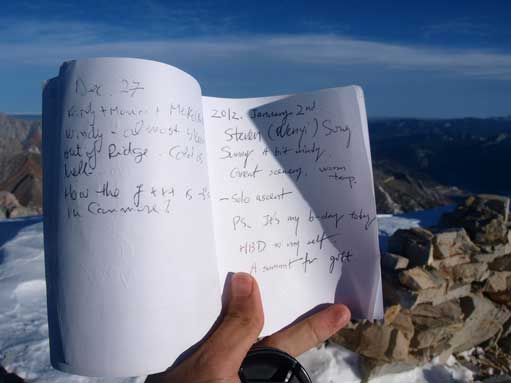 Dec. 27
Windy - almost blew
out of Ridge. Cold as
hell.
How the f*** is
in Canmore?
2012. January 2nd
Steven (Wenyi) Song
Sunny A bit windy.
Great scenery, warm
temp.
- Solo ascent
Ps. It's my b-day today
HBD to my self
A summit for gift